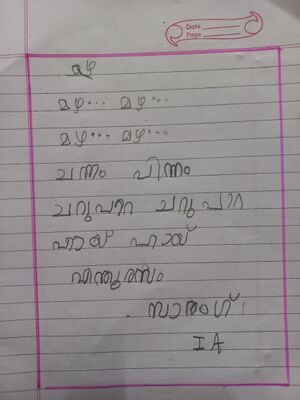 Date
Page
മഴ
മഴ... മഴ...
മഴ... മഴ...
ചന്നം പിന്നം
ചറുപറ ചറുപറ
ഹായ് ഹായ്
എന്തുരസം
സാരംഗ്
I A